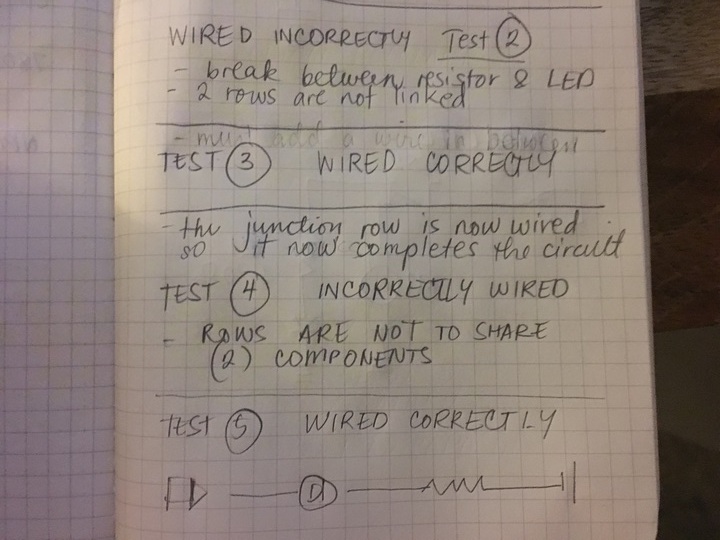 WIRED INCORRECTLY Test 2
- break between resistor & LED
- 2 rows are not linked
- must add a wire in between
TEST 3 WIRED CORRECTLY
- the junction row is now wired
so it now completes the circuit
TEST 4 INCORRECTLY WIRED
- ROWS ARE NOT TO SHARE
(2) COMPONENTS
TEST 5 WIRED CORRECTLY